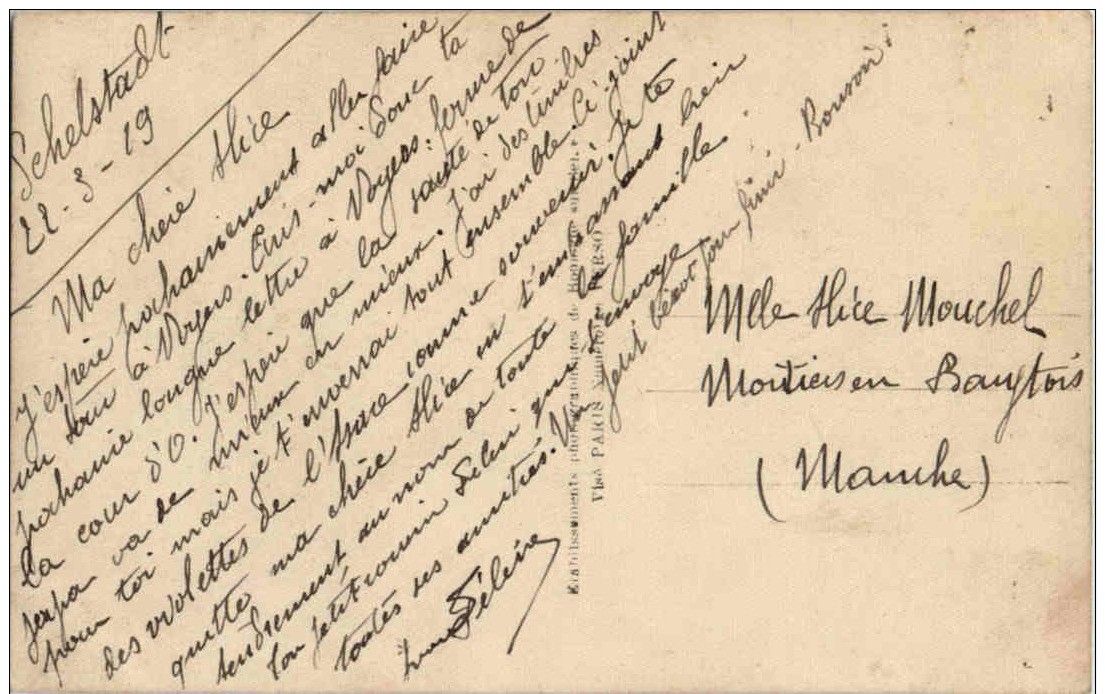 Schelstadt
22-3-19
Ma chère Alice
J'espère prochainement aller faire
un tour à Noyers. Ecris-moi donc ta
prochaine longue lettre à Noyers: ferme de
la cour d'O. J'espère que la santé de ton
papa va de mieux en mieux. J'ai des timbres
pour toi mais je t'enverrai tout ensemble. Ci joint
des violettes de l'Alsace comme souvenir. Je te
quitte ma chère Alice en t'embrassant bien
tendrement au nom de toute la famille.
Ton petit cousin qui t'envoye
toutes ses amitiés. Un petit bécot pour finir - Bonsoir!
Mlle Alice Mouchel
Moutiers en Bauptois
(Manche)
Etablissements photographiques de
Visé PARIS VERSO